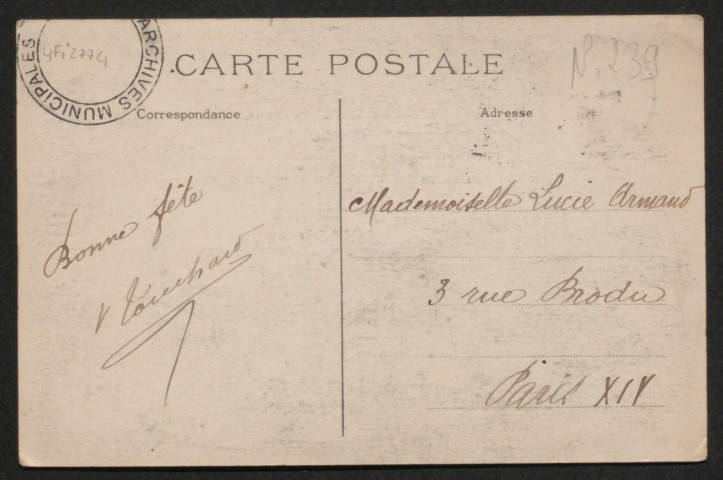 ARCHIVES MUNICIPALES
4Fi2774
CARTE POSTALE
N° 239
Correspondance
Adresse
Bonne fête
V Touchard
Mademoiselle Lucie Armand
3 rue Brodu
Paris XIV